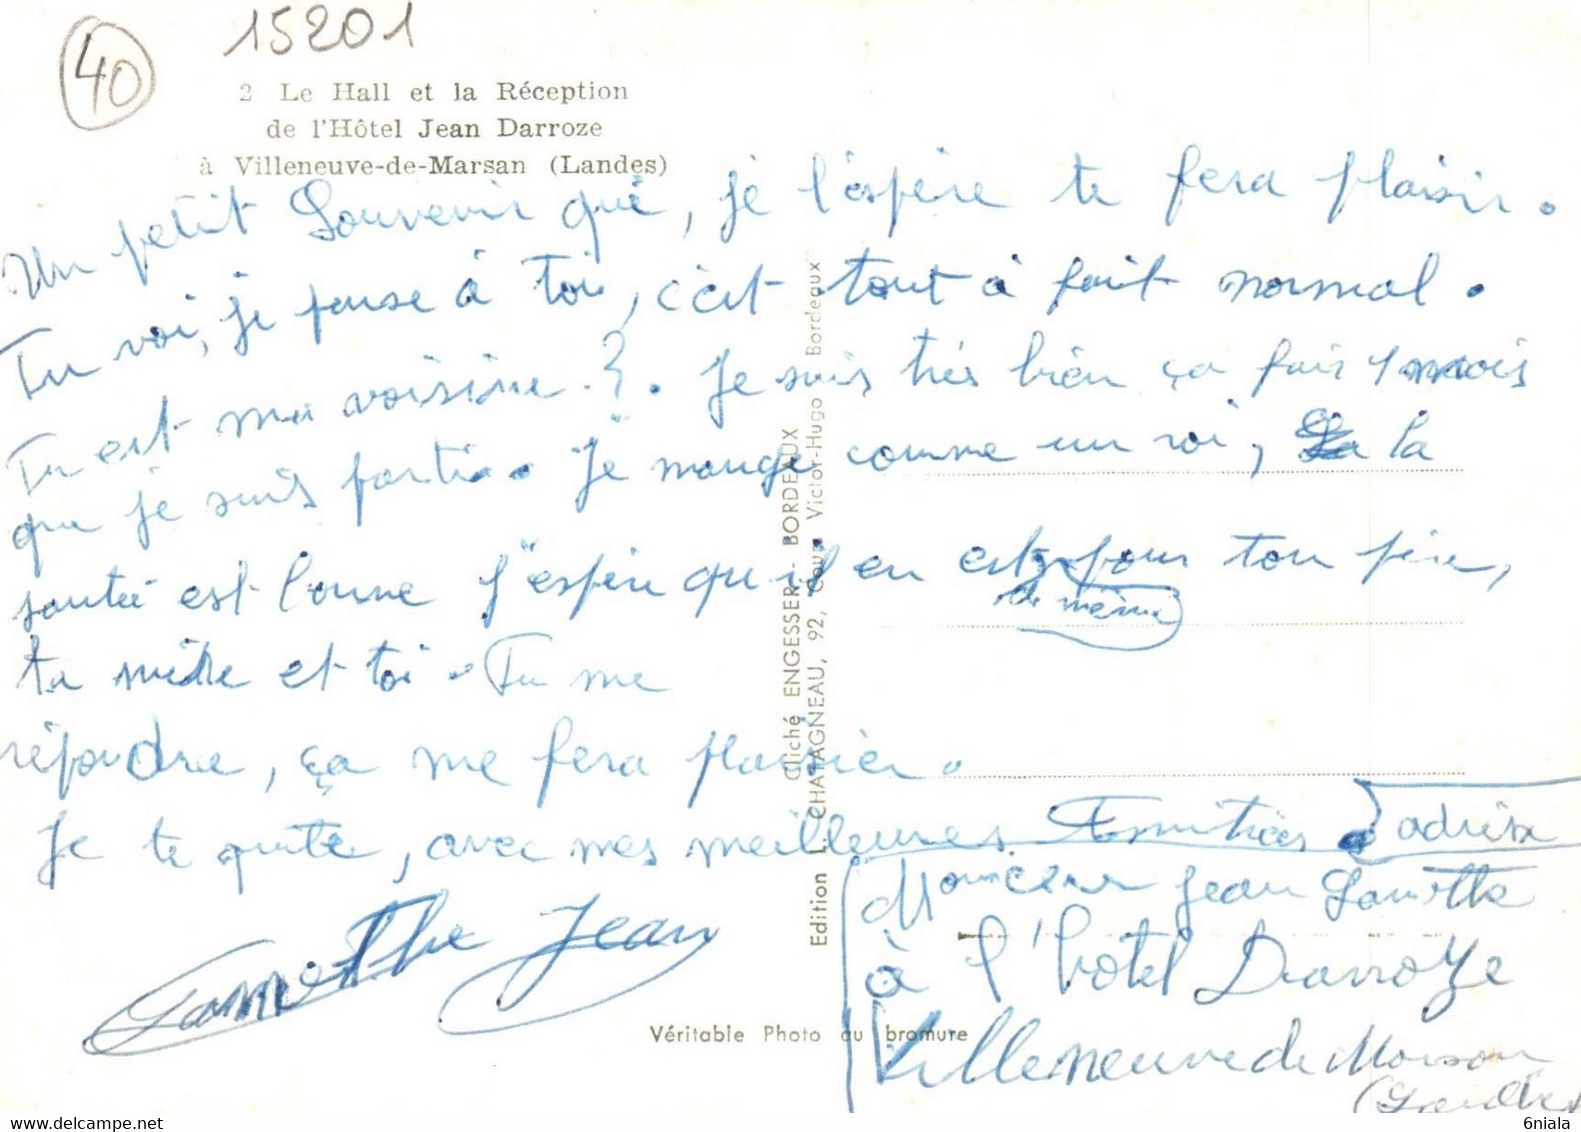 40
15201
2 Le Hall et la Réception
de l'Hôtel Jean Darroze
à Villeneuve-de-Marsan (Landes)
Un petit Souvenir qui, je l'éspére te fera plaisir.
Tu voi, je pense à toi, c'èst tout à fait normal.
Tu est ma voisine. ?. Je suis très bien ça fais 1 mois
que je suis parti. Je mange comme un roi, la
santée est bonne J'espère qu'il en est de même pour ton père,
ta mère et toi. Tu me
répondre, ça me fera plaisier.
Je te quite, avec mes meilleures Amitiées
Lamothe Jean
adrèse
Moncieur Jean Lamothe
à l'hotel Darroze
Villeneuve de Marsan
(Landes
Cliché ENGESSER - BORDEAUX
Edition L. CHATAGNEAU, 92, Cours Victor-Hugo Bordeaux
Véritable Photo au bromure
6niala